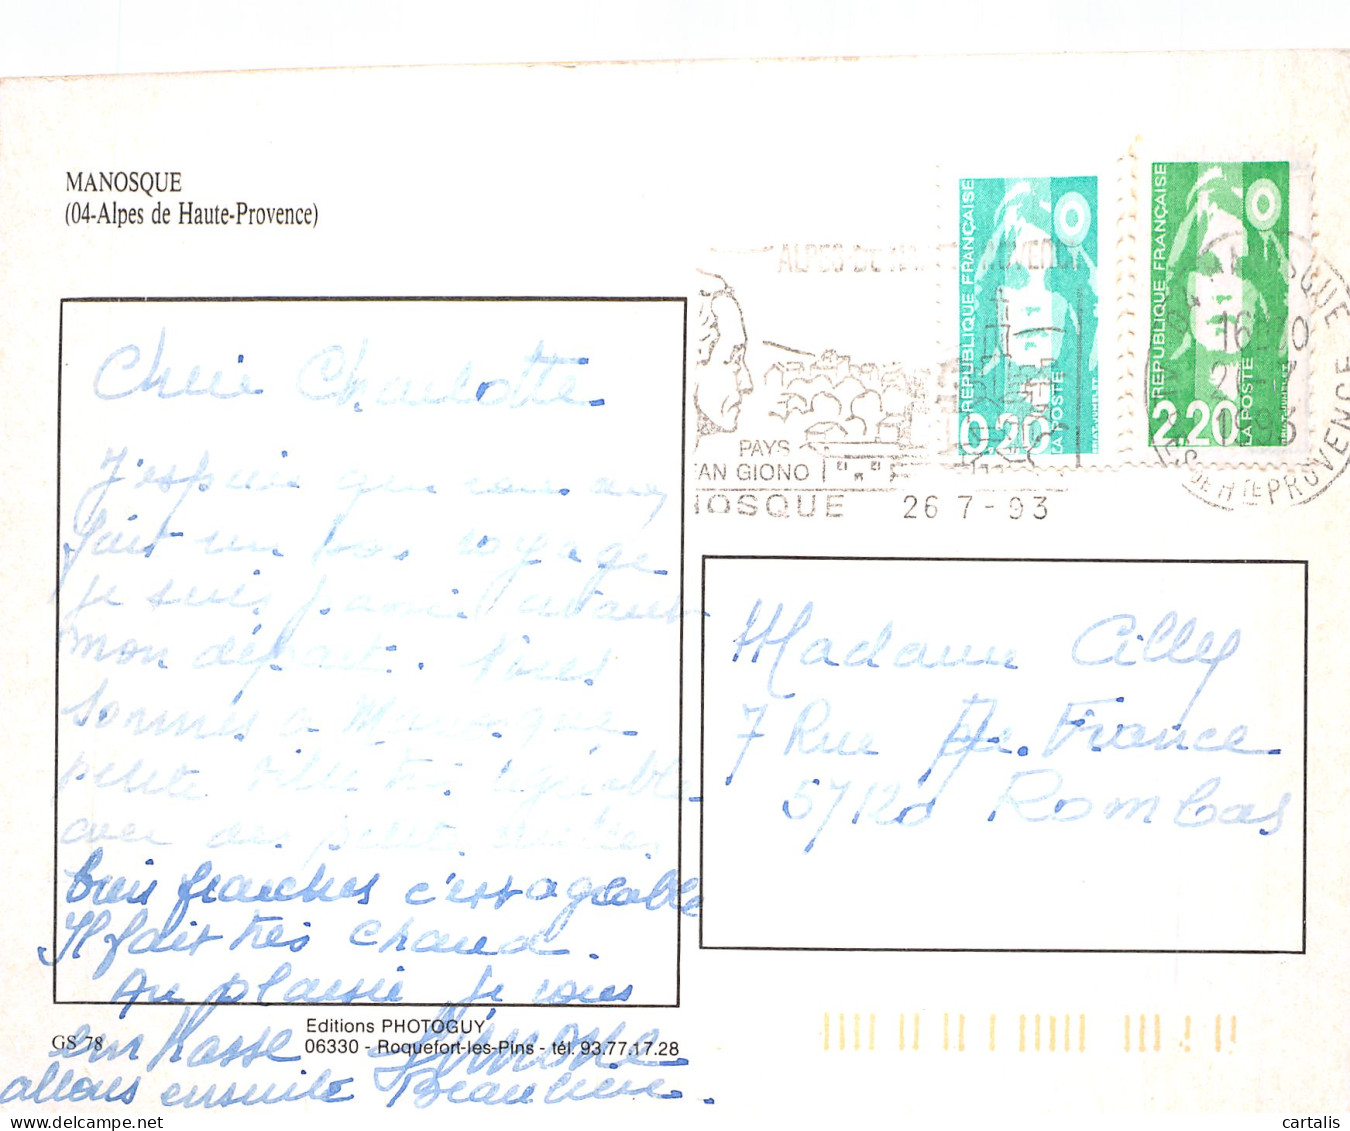 MANOSQUE
(04-Alpes de Haute-Provence)
ALPES DE
RÉPUBLIQUE FRANÇAISE
0,20
LA POSTE
RÉPUBLIQUE FRANÇAISE
2,20
LA POSTE
PAYS
EAN GIONO
NOSQUE
26 7 - 93
1993
HTE PROVENCE
Cherie Charlotte
J'espère que vous avez
fait un bon voyage
je suis
mon départ. Nous
sommes a Manosque
petite ville très agréable
avec des petit
bien franches c'est agréable
Il fait très chaud.
Au plaisir je vous
embrasse Simone
allons ensuite Beaulieu.
Madame Cilly
7 Rue De. France
57120 Rombas
GS 78
Editions PHOTOGUY
06330 - Roquefort-les-Pins - tél. 93.77.17.28
cartalis